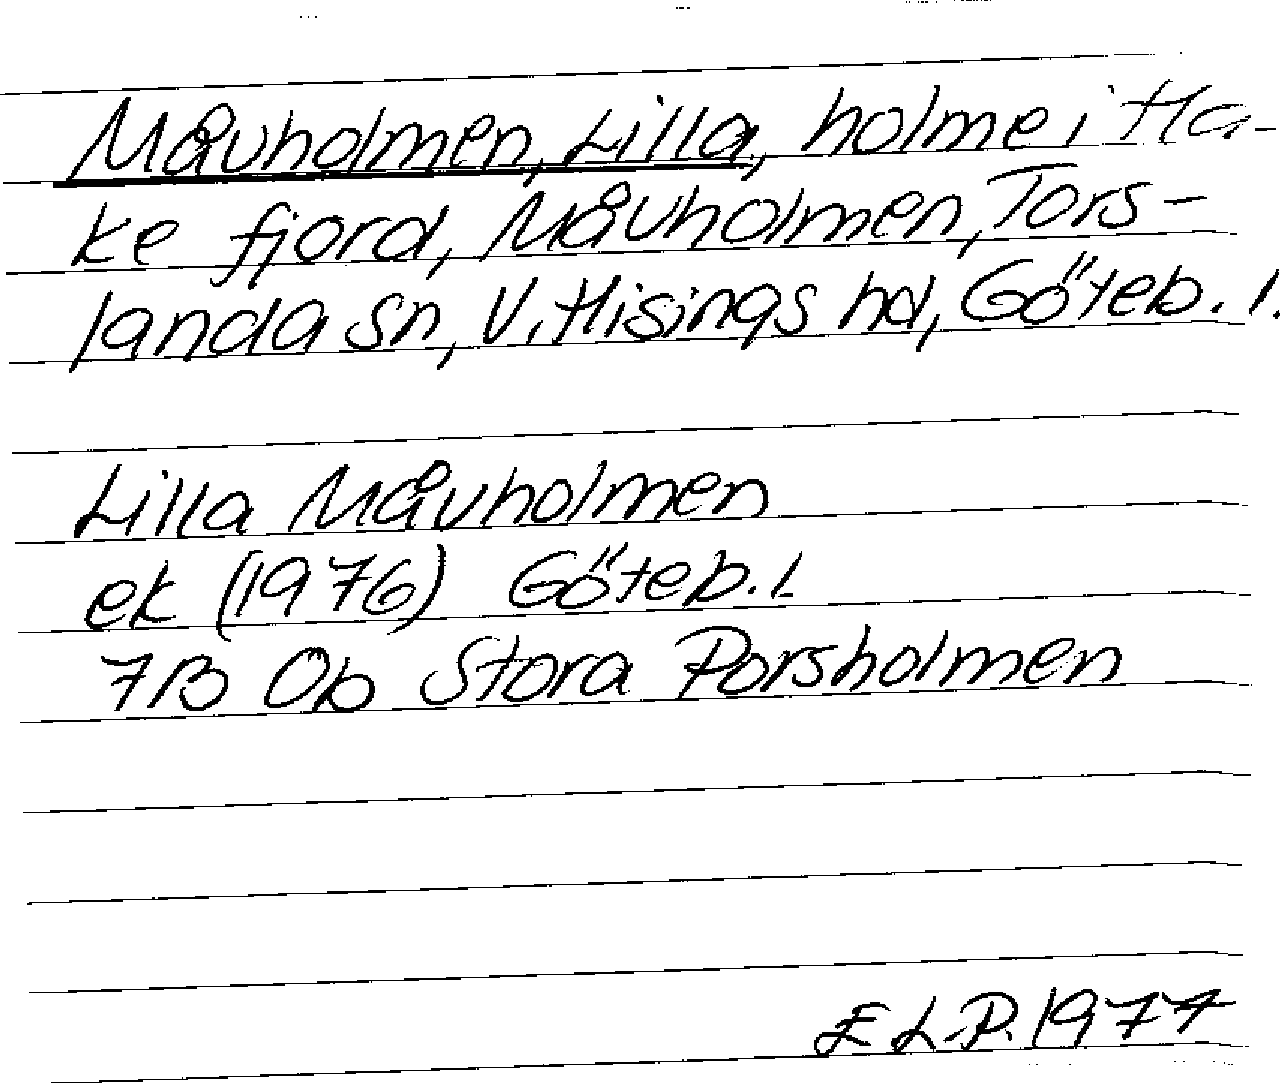 Måvholmen, Lilla, holme i Ha-
ke fjord, Måvholmen, Tors-
landa sn, V. Hisings hd, Göteb. l.
Lilla Måvholmen
ek (1976) Göteb. l
7B 0b Stora Porsholmen
E L-P. 1977